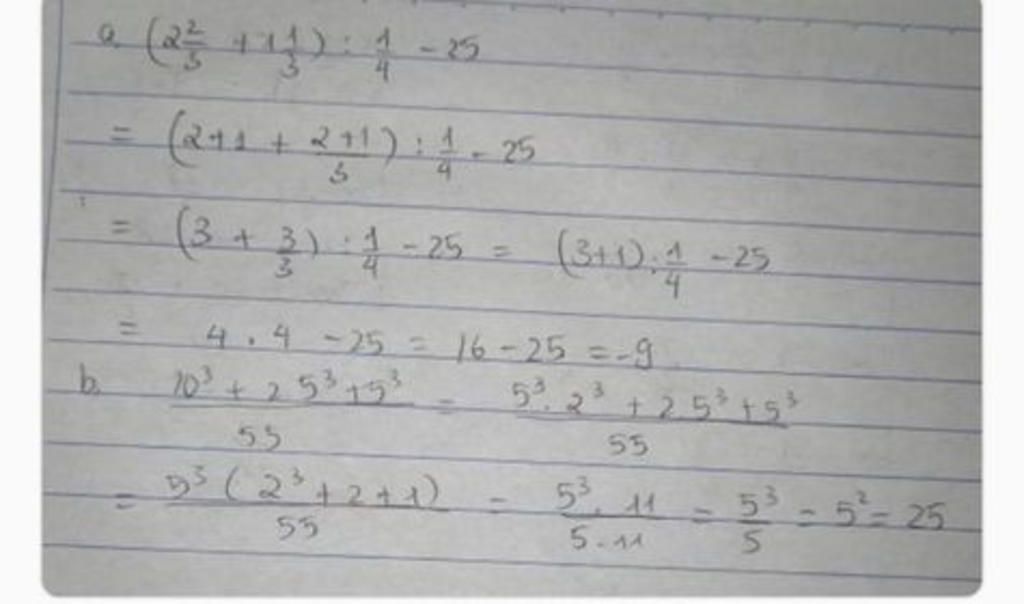 a. (2 2/3 + 1 1/3) : 1/4 - 25
= (2+1 + (2+1)/3) : 1/4 - 25
= (3 + 3/3) : 1/4 - 25 = (3+1) : 1/4 - 25
= 4 . 4 - 25 = 16 - 25 = -9
b. (10³ + 2 5³ + 5³)/55 = (5³. 2³ + 2.5³ + 5³)/55
= 5³ (2³ + 2 + 1)/55 = (5³ . 11)/(5 . 11) = 5³/5 = 5² = 25